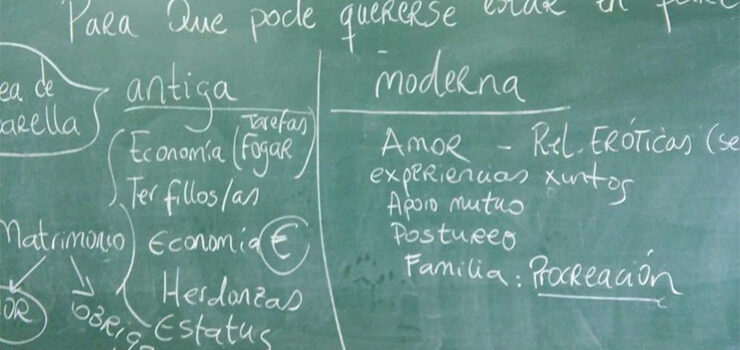 Para Que pode quererse estar en
ea de
arella
antiga
Tarefas
Economía (Fogar)
Ter fillos/as
Matrimonio
Economía €
Herdanzas
Estatus
OR
OBRIGA
moderna
AMOR - Rel. ERÓTICAS (se
experiencias xuntos
Apoio mutuo
Postureo
Familia: Procreación